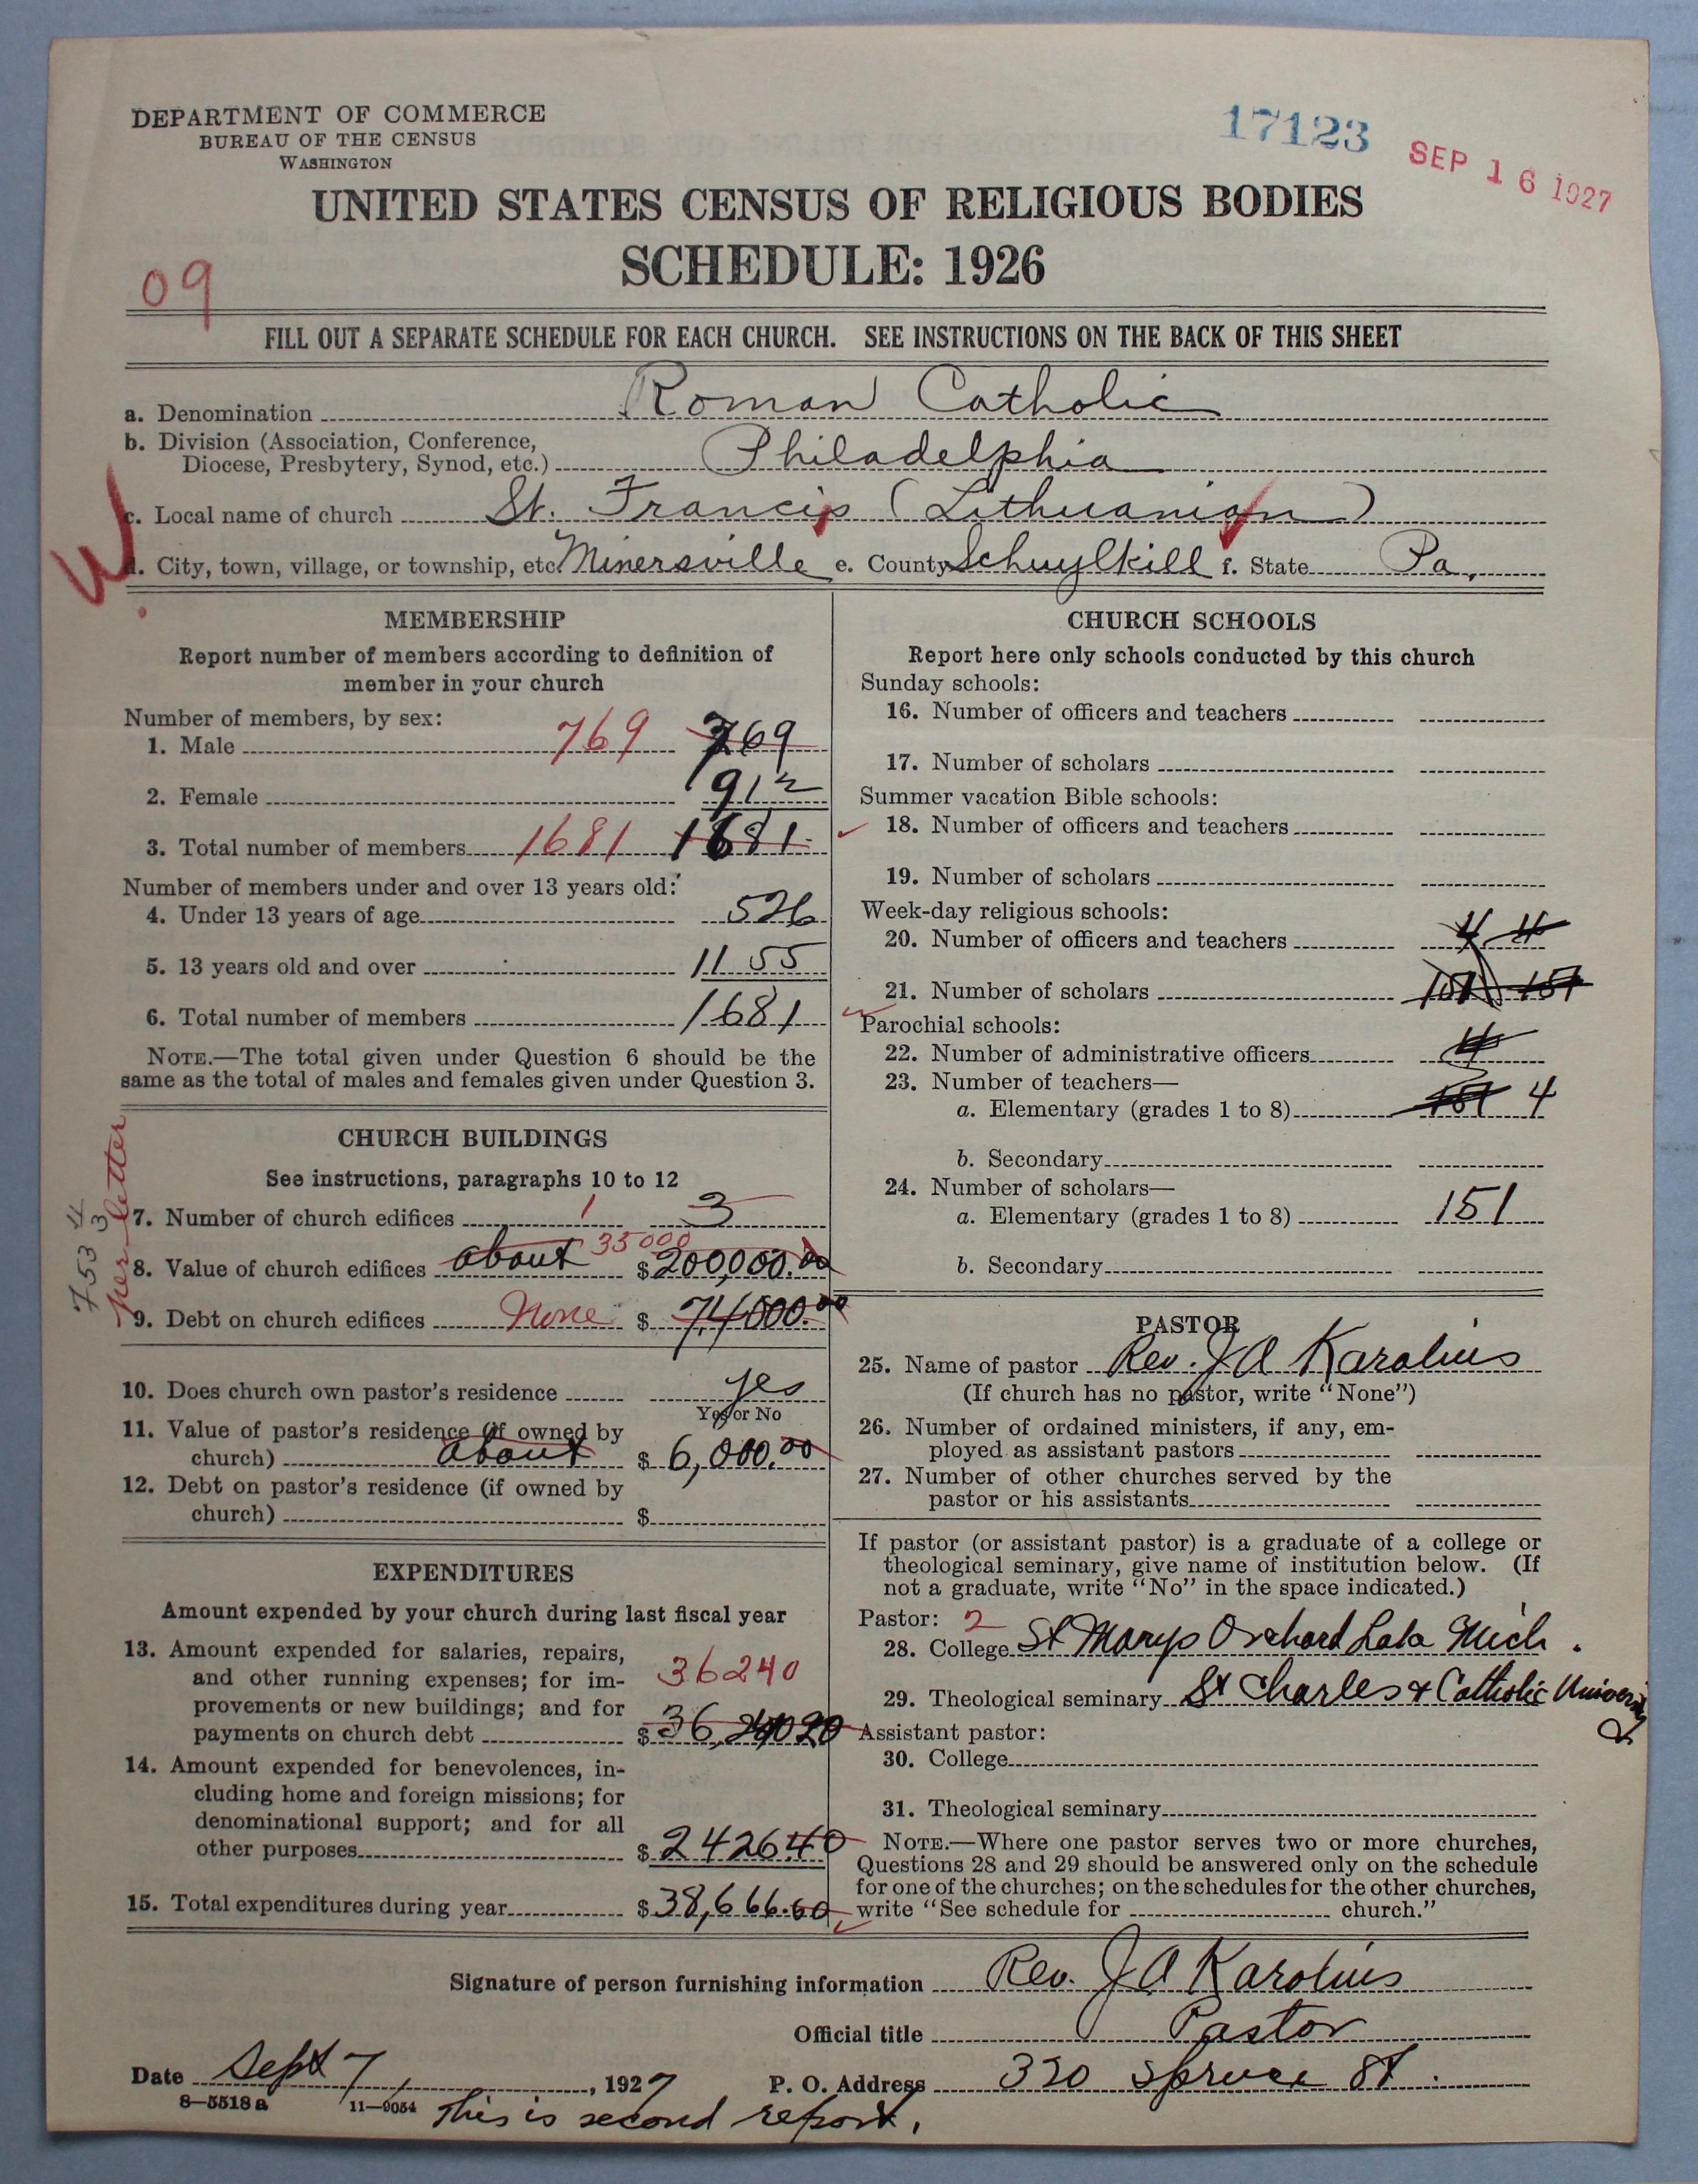 DEPARTMENT OF COMMERCE
BUREAU OF THE CENSUS
WASHINGTON
17123
SEP 16 1927
UNITED STATES CENSUS OF RELIGIOUS BODIES
SCHEDULE: 1926
09
FILL OUT A SEPARATE SCHEDULE FOR EACH CHURCH. SEE INSTRUCTIONS ON THE BACK OF THIS SHEET
a. Denomination Roman Catholic
b. Division (Association, Conference,
Diocese, Presbytery, Synod, etc.) Philadelphia
c. Local name of church St. Francis (Lithuanian)
W
d. City, town, village, or township, etc. Minersville e. County Schuylkill f. State Pa.
MEMBERSHIP
Report number of members according to definition of
member in your church
Number of members, by sex:
1. Male 769 769
2. Female 912
3. Total number of members 1681 1681
Number of members under and over 13 years old:
4. Under 13 years of age 526
5. 13 years old and over 1155
6. Total number of members 1681
NOTE.—The total given under Question 6 should be the
same as the total of males and females given under Question 3.
CHURCH BUILDINGS
See instructions, paragraphs 10 to 12
7. Number of church edifices 1 3
8. Value of church edifices about 35000 $200,000.00
9. Debt on church edifices None $ 74000.00
per letter
7534
3
10. Does church own pastor's residence yes
Yes or No
11. Value of pastor's residence (if owned by
church) about $ 6,000.00
12. Debt on pastor's residence (if owned by
church) $
EXPENDITURES
Amount expended by your church during last fiscal year
13. Amount expended for salaries, repairs,
and other running expenses; for im-
provements or new buildings; and for
payments on church debt 36240 $36,240 20
14. Amount expended for benevolences, in-
cluding home and foreign missions; for
denominational support; and for all
other purposes $2426 40
15. Total expenditures during year $38,666.60
CHURCH SCHOOLS
Report here only schools conducted by this church
Sunday schools:
16. Number of officers and teachers
17. Number of scholars
Summer vacation Bible schools:
18. Number of officers and teachers
19. Number of scholars
Week-day religious schools:
20. Number of officers and teachers 4 4
21. Number of scholars 151 151
Parochial schools:
22. Number of administrative officers 4
23. Number of teachers—
a. Elementary (grades 1 to 8) 151 4
b. Secondary
24. Number of scholars—
a. Elementary (grades 1 to 8) 151
b. Secondary
PASTOR
25. Name of pastor Rev. J A Karalius
(If church has no pastor, write "None")
26. Number of ordained ministers, if any, em-
ployed as assistant pastors
27. Number of other churches served by the
pastor or his assistants
If pastor (or assistant pastor) is a graduate of a college or
theological seminary, give name of institution below. (If
not a graduate, write "No" in the space indicated.)
Pastor: 2
28. College St Marys Orchard Lake Mich.
29. Theological seminary St Charles & Catholic University
Assistant pastor:
30. College
31. Theological seminary
NOTE.—Where one pastor serves two or more churches,
Questions 28 and 29 should be answered only on the schedule
for one of the churches; on the schedules for the other churches,
write "See schedule for church."
Signature of person furnishing information Rev. J A Karalius
Official title Pastor
Date Sept 7, 1927 P. O. Address 320 Spruce St.
8—5518 a 11—9054 This is second report.